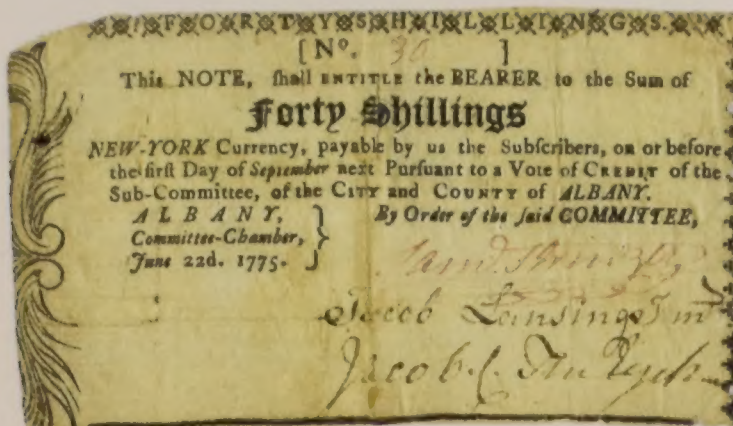 FORTY SHILLINGS.
[No. 30 ]
This NOTE, ſhall ENTITLE the BEARER to the Sum of
Forty Shillings
NEW-YORK Currency, payable by us the Subſcribers, on or before
the firſt Day of September next Purſuant to a Vote of CREDIT of the
Sub-Committee, of the CITY and COUNTY of ALBANY.
ALBANY, By Order of the ſaid COMMITTEE,
Committee-Chamber,
June 22d. 1775.
Jacob Lansing Jun
Jacob C. Ten Eyck